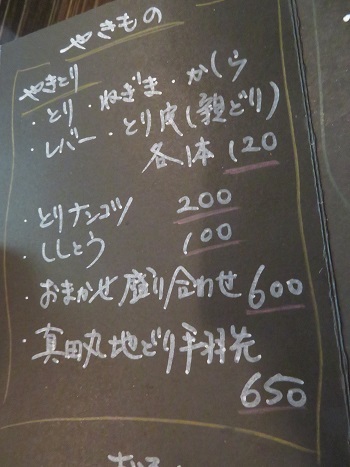 やきもの
やきとり
・とり・ねぎま・かしら
・レバー・とり皮(親どり)
各1本 120
・とりナンコツ 200
・ししとう 100
・おまかせ盛り合わせ 600
・真田丸地どり手羽先
650